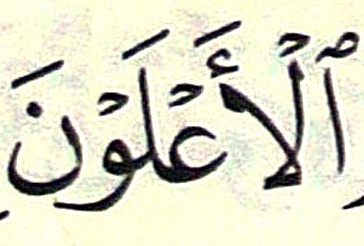 ٱلْأَعْلَوْنَ